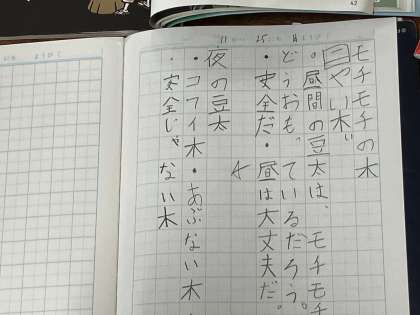 11 25
モチモチの木
昼間の豆太は、モチモチ
どうおもっているだろう。
・安全だ・昼は大丈夫だ。
夜の豆太
・コワイ木・あぶない木
・安全じゃない木
42